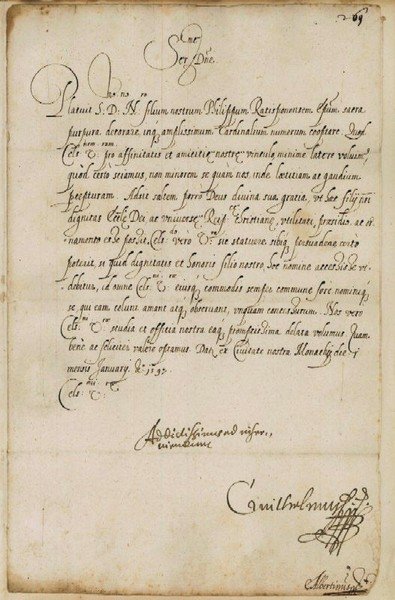 269
Ser.me Dne.
Placuit S. D. N. filium nostrum Philippum Ratisponensem Epum. sacra
purpura decorare, inq amplissimum Cardinalium numerum cooptare. Quod
Cels. V. pro affinitatis et amicitiae nostrae vinculo minime latere volumus,
quod certo sciamus, non minorem se quam nos inde laetitiam ac gaudium
percepturam. Adsit saltem porro Deus divina sua gratia, ut haec filij nri
dignitas Ecclae Dei ac universae Reip. Christianae, utilitati, praesidio, ac or
namento esse possit. Cels. vero V. sic statuere sibiq persuadere certo
poterit, si quid dignitatis et honoris filio nostro hoc nomine accessisse vi
debitur, id omne Cels. V. eiusq commodis semper commune fore, nominiq
se qui eam colunt, amant atq observant, unquam
Cels. V. studia et officia nostra eaq promptissima delata volumus. Quam
bene ac feliciter valere optamus. Dat. ex Civitate nostra Monachij die
mensis January. Ao. 1597.
Cels. V.
Addictissimus ad inser-
viendum
Guilhelmus
Albertinus